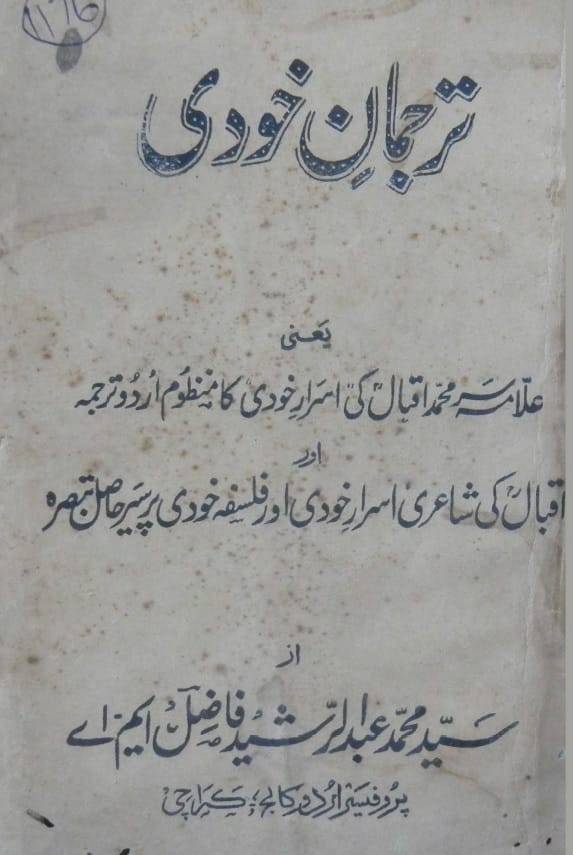 ۱۱۲۶
ترجمانِ خودی
یعنی
علّامہ سر محمد اقبالؒ کی اسرارِ خودی کا منظُوم اُردُو ترجمہ
اور
اقبالؒ کی شاعری اسرارِ خودی اور فلسفہ خودی پر سیر حاصل تبصرہ
از
سیّد محمّد عبدالرّشید فاضِلؔ ایم-اے
پروفیسر اُردو کالج، کراچی